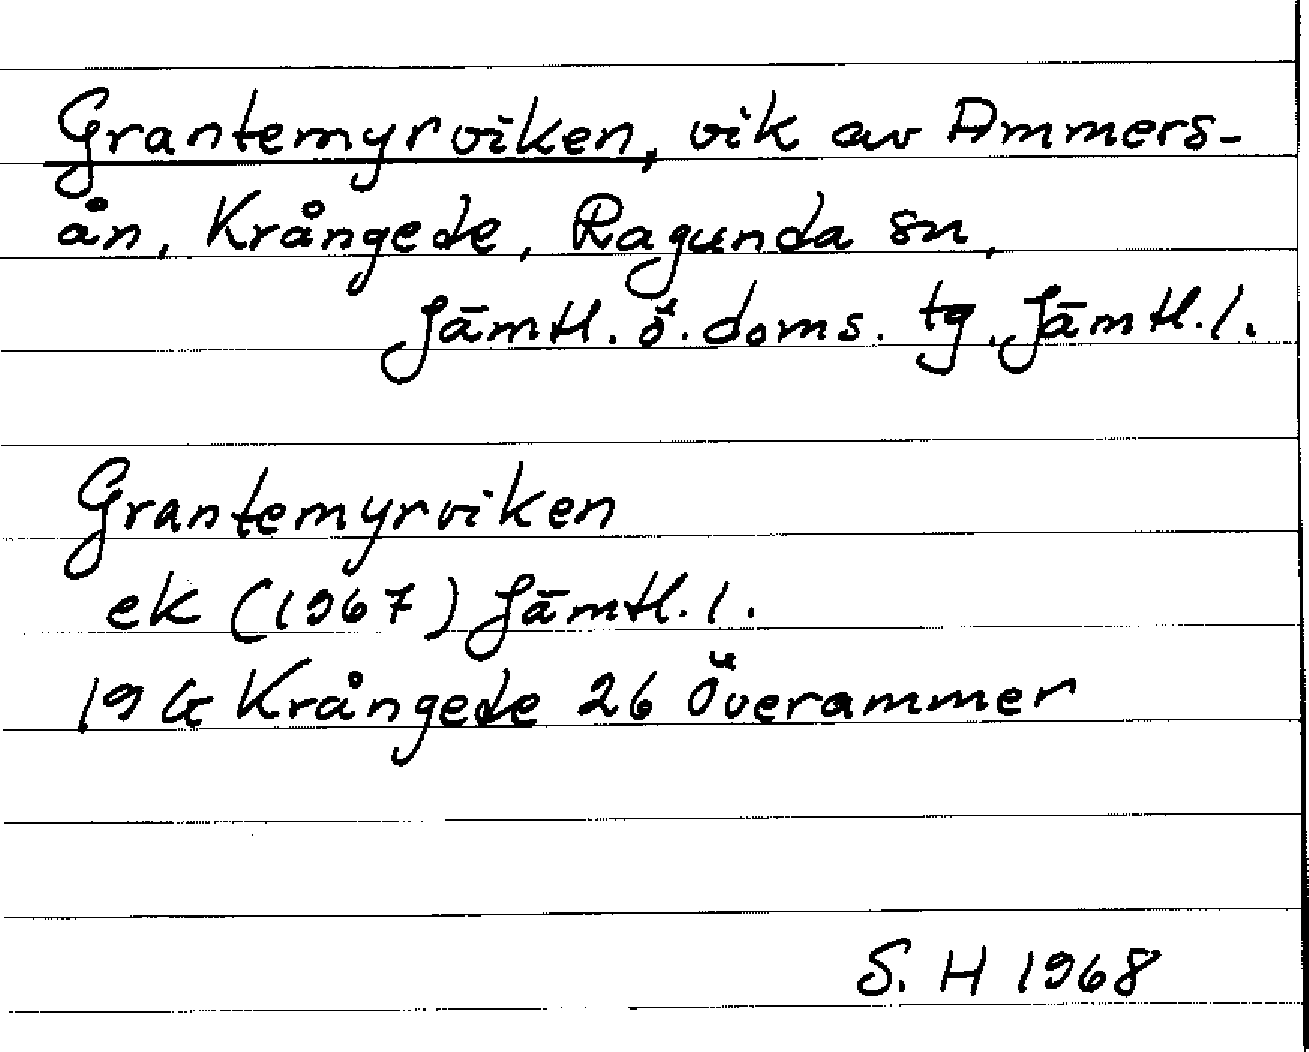 Grantemyrviken, vik av Ammers-
ån, Krångede, Ragunda sn,
Jämtl. ö. doms. tg. Jämtl. l.
Grantemyrviken
ek (1967) Jämtl. l.
19 G Krångede 26 Överammer
S. H 1968